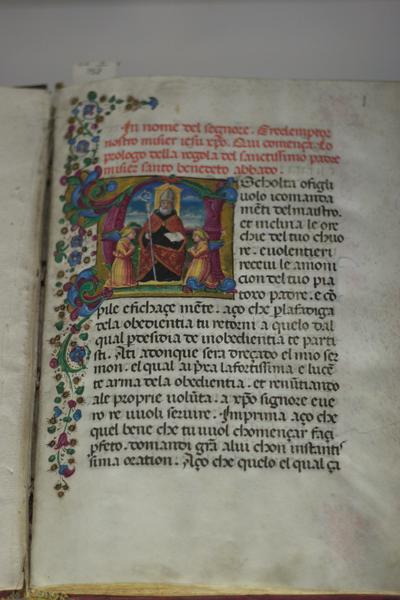 In nome del segnore. Eredemptor
nostro misier iesu xpo. Qui comença. Lo
prologo della regola del sanctissimo padre
misier santo benedeto abbado.
AScholta ofigli
uolo icomanda
mēti del maistro.
et inclina le ore
chie del tuo chuo
re. euolentieri
receui le amoni
cion del tuo pia
toxo padre. e cō
pile efichaçe mēte. aço che plafadiga
dela obedientia tu retorni a quelo dal
qual pdesidia de inobedientia te parti
sti. Ati adonque sera dreçado el mio ser
mon. el qual ai prea lafortissima e lucē
te arma dela obedientia. et renūtiando
ale proprie volūta. a xpo signore eue
ro re vuoli seruire. Imprima aço che
quel bene che tu vuol chomençar faci
pfeto. domandi grā alui chon instanti
sima oration. Aço che quelo el qual ça